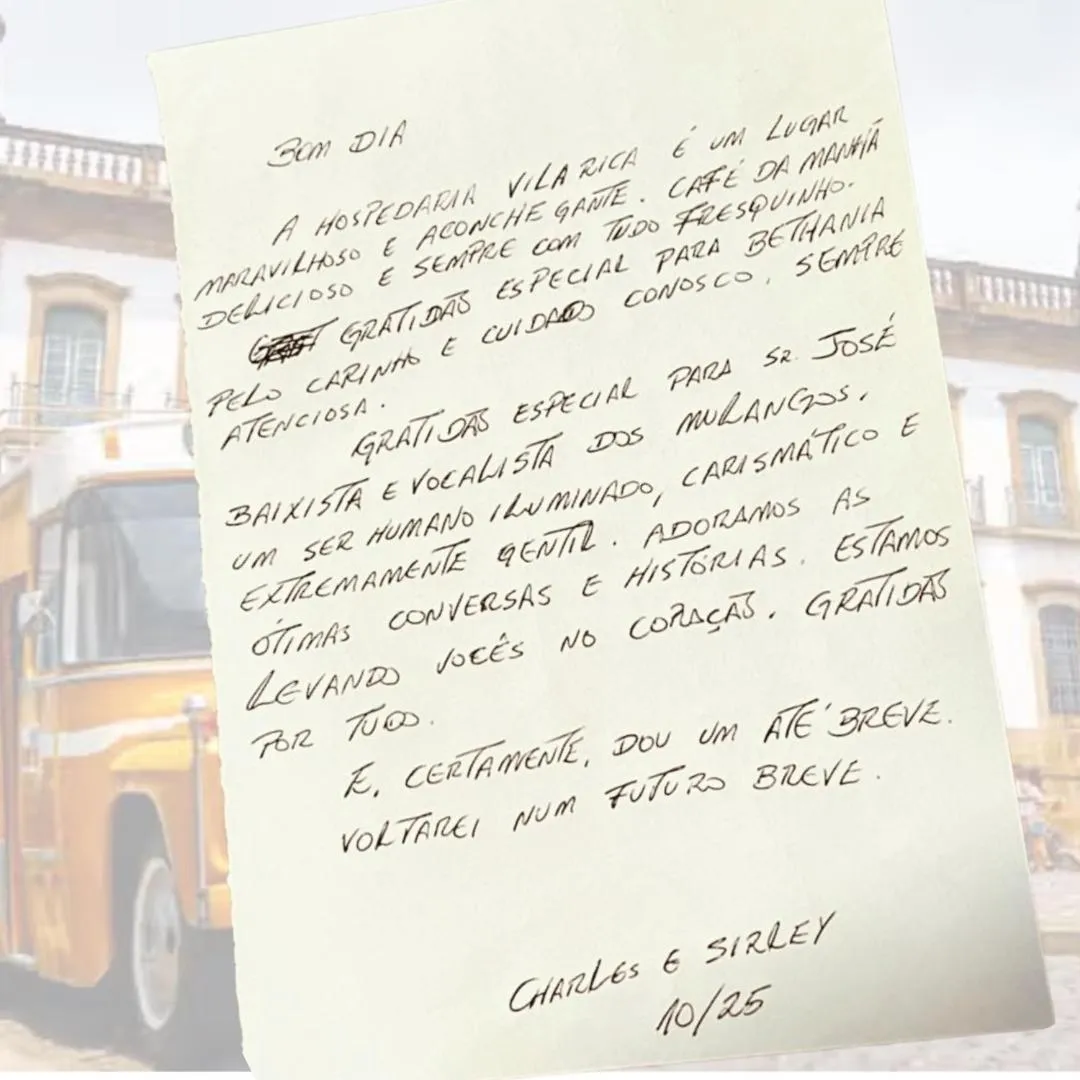 BOM DIA
A HOSPEDARIA VILA RICA É UM LUGAR
MARAVILHOSO E ACONCHEGANTE. CAFÉ DA MANHÃ
DELICIOSO E SEMPRE COM TUDO FRESQUINHO.
GRATIDÃO ESPECIAL PARA BETHANIA
PELO CARINHO E CUIDADO CONOSCO, SEMPRE
ATENCIOSA.
GRATIDÃO ESPECIAL PARA SR. JOSÉ
BAIXISTA E VOCALISTA DOS MURANGOS.
UM SER HUMANO ILUMINADO, CARISMÁTICO E
EXTREMAMENTE GENTIL. ADORAMOS AS
ÓTIMAS CONVERSAS E HISTÓRIAS. ESTAMOS
LEVANDO VOCÊS NO CORAÇÃO. GRATIDÃO
POR TUDO.
E, CERTAMENTE, DOU UM ATÉ BREVE.
VOLTAREI NUM FUTURO BREVE.
CHARLES E SIRLEY
10/25